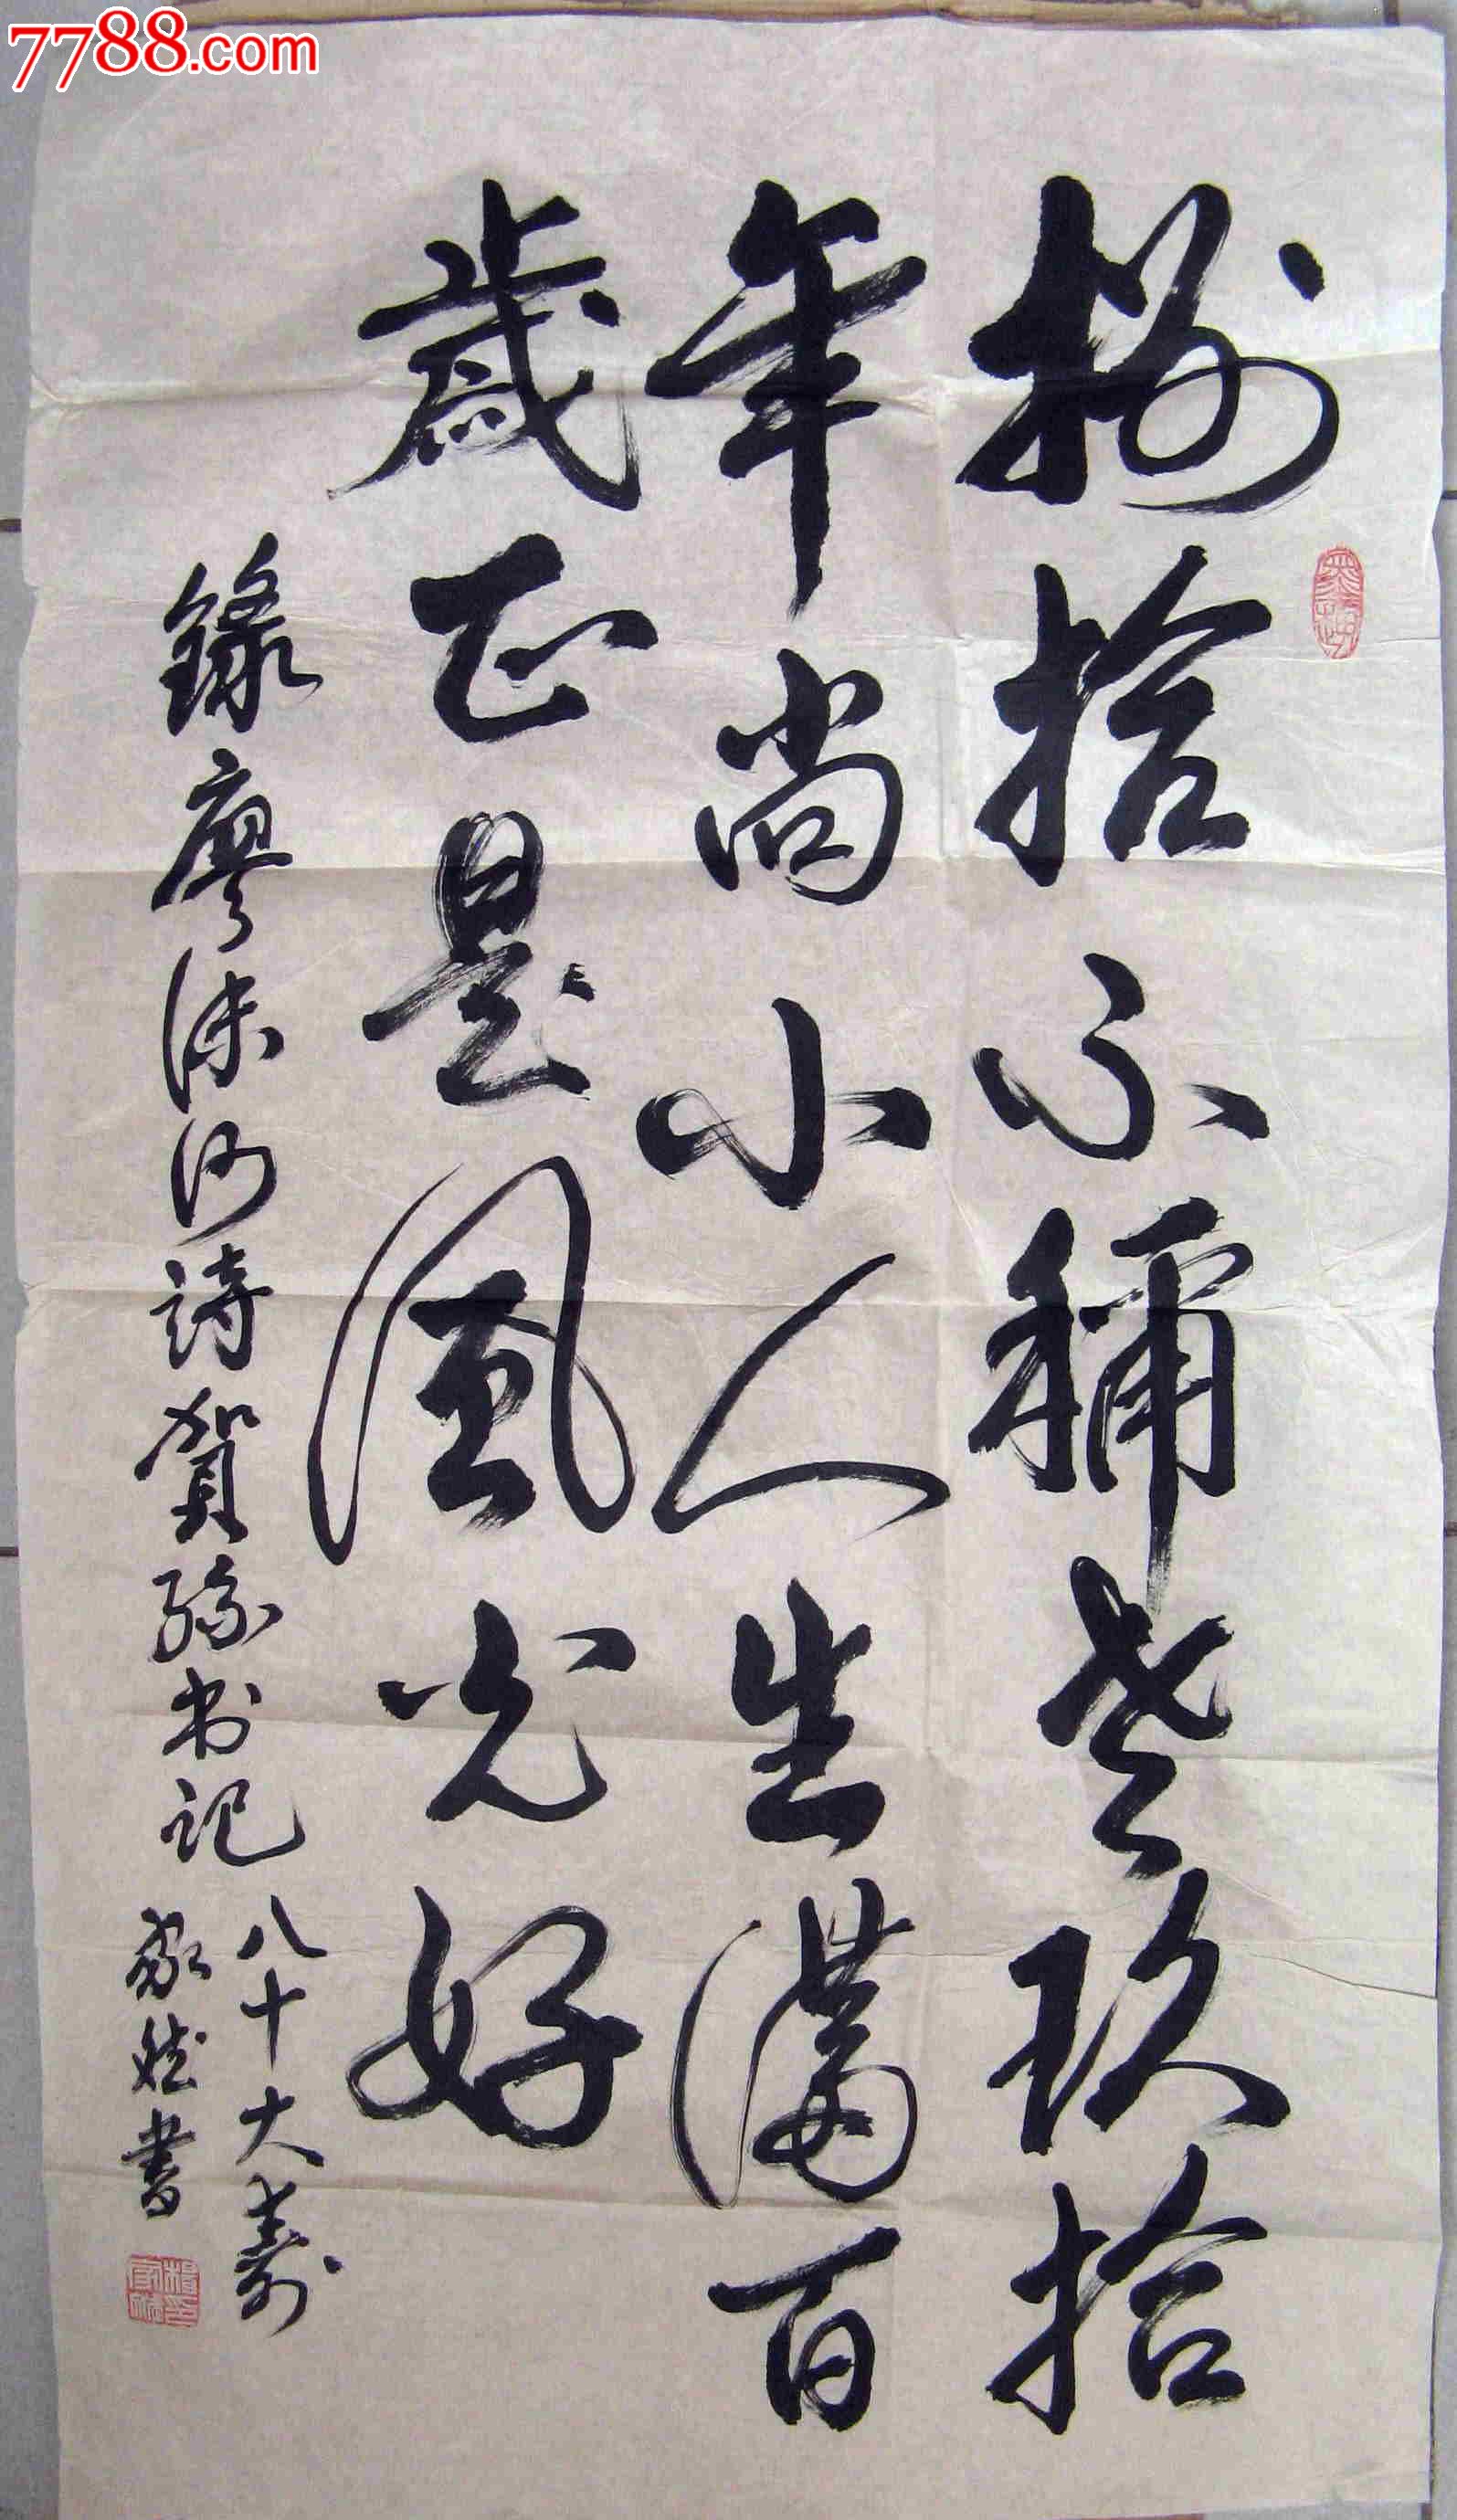 捌拾不稱老玖拾
年尚小人生滿百
歲正是風光好
錄廖沫沙詩賀孫书记
八十大壽
家雄書
7788.com